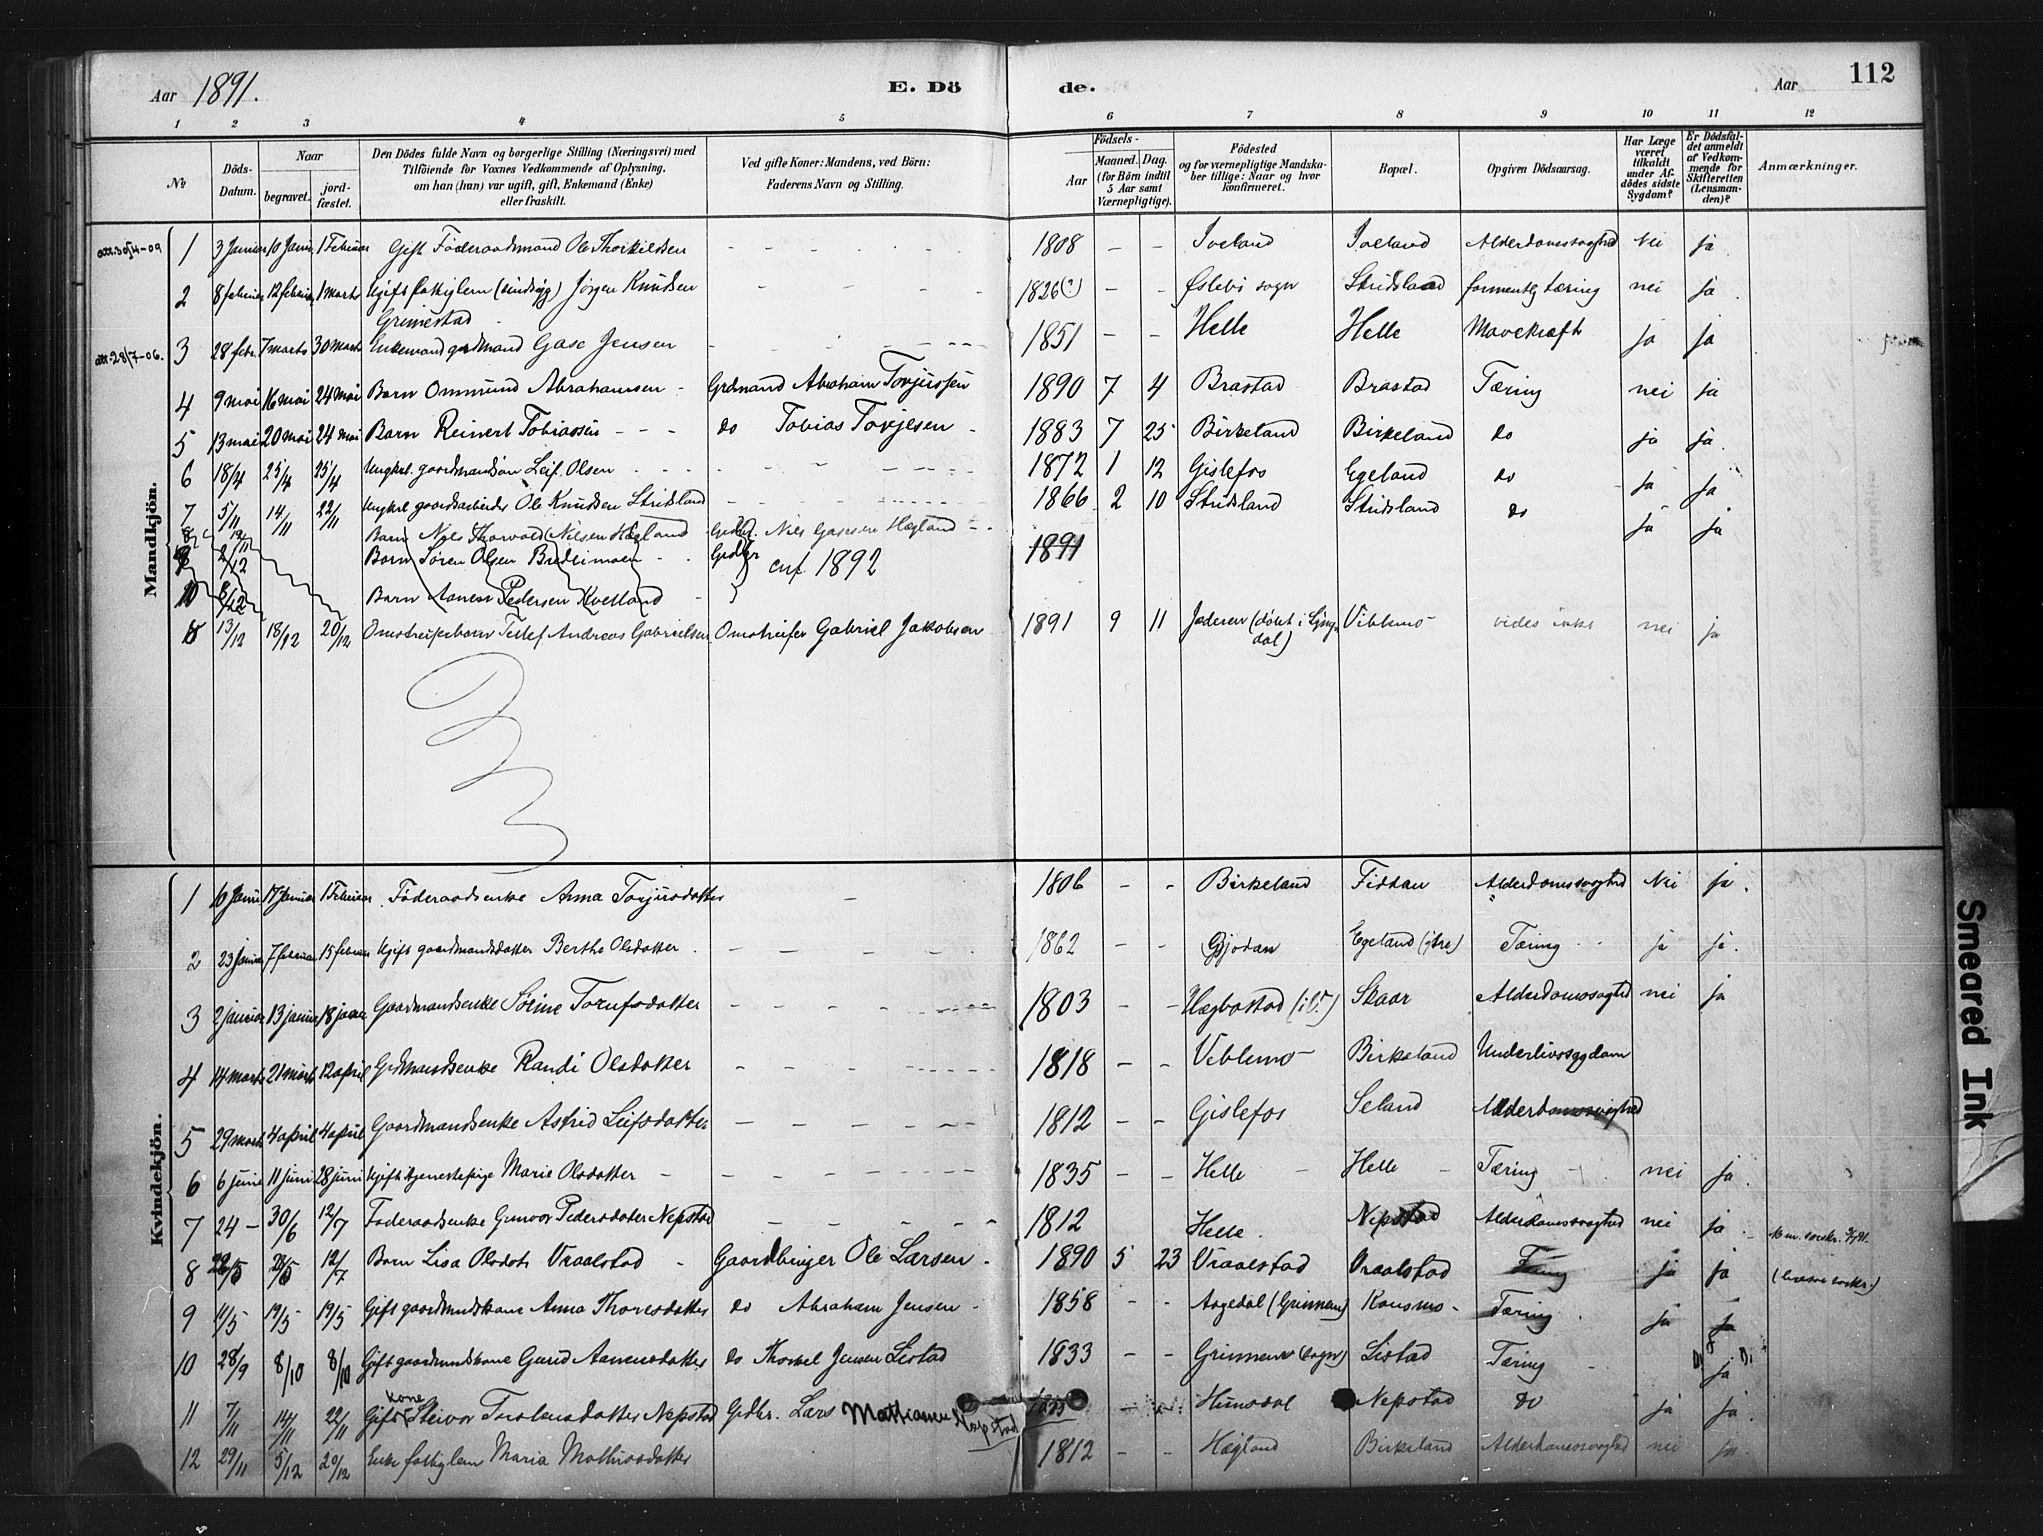 Aar 1891. E. Dö de. Aar 112
1 2 3 4 5 6 7 8 9 10 11 12
No Döds-Datum. Naar begravet. jord-fæstet. Den Dödes fulde Navn og borgerlige Stilling (Næringsvei) med Tilföiende for Voxnes Vedkommende af Oplysning, om han (hun) var ugift, gift, Enkemand (Enke) eller fraskilt. Ved gifte Koner: Mandens, ved Börn: Faderens Navn og Stilling. Födsels- Aar Maaned. Dag. (for Börn indtil 5 Aar samt Værnepligtige). Födested og for værnepligtige Mandska-ber tillige: Naar og hvor konfirmeret. Bopæl. Opgiven Dödsaarsag. Har Læge været tilkaldt under Af-dödes sidste Sygdom? Er Dödsfal-det anmeldt af Vedkom-mende for Skifteretten (Lensman-den)? Anmærkninger.
Mandkjön.
att. 30/4-09 1 3 Januar 10 Januar 1 Februar Gift Föderaadsmand Ole Thorkildsen - - - 1808 - - Iveland Iveland Alderdomssvaghed Nei ja.
2 8 februar 12 februar 1 marts Ugift fattiglem (sindssyg) Jörgen Knudsen - - - 1826(?) - - Øslebö sogn Stridsland formentlig tæring nei ja.
Grimestad
att. 28/7-06. 3 28 febr. 7 marts 30 marts Enkemand gardmand Gase Jensen - - - 1851 - - Helle Helle Mavekræft ja ja
4 9 mai 16 mai 24 mai Barn Ommund Abrahamsen - Grdmand Abraham Torjussen 1890 7 4 Brastad Brastad Tæring nei ja
5 13 mai 20 mai 24 mai Barn Reinert Tobiassen - - - do Tobias Torjesen - 1883 7 25 Birkeland Birkeland do ja ja.
6 18/4 25/4 25/4 Ungkrl. gaardmandsön Leif Olsen - - - 1872 1 12 Gislefos Egeland do ja ja
7 5/11 14/11 22/11 Ungkrl gaardsarbeider Ole Knudsen Stridsland - - - 1866 2 10 Stridsland Stridsland do ja ja
8 12/11 Barn Nils Thorvald Nilsen Hægland Nils Gasesen Hægland - 1891
9 2/12 Barn Sören Olsen Bredlimoen - Grdbr cnf. 1892
10 8/12 Barn Aanen Pedersen Kvelland -
8 13/12 18/12 20/12 Omstreiferbarn Tellef Andreas Gabrielsen Omstreifer Gabriel Jakobsen 1891 9 11 Jæderen (döbt i Lyng- Viblemo - vides ikke nei ja
dal)
Kvindekjön.
1 6 Januar 17 Januar 1 Februar Föderaadsenke Anna Torjusdatter - 1806 - - Birkeland Fiddan Alderdomssvaghed Nei ja.
2 23 Januar 7 februar 15 februar Ugift gaardmandsdatter Berthe Olsdatter - - - 1862 - - Gjodan Egeland (ytre) Tæring ja ja.
3 2 januar 13 januar 18 januar Gaardmandsenke Serine Torufsdatter - - - 1803 - - Hægbostad Skaar Alderdomssvaghed nei ja
4 14 marts 21 marts 12 april Grdmandsenke Randi Olsdatter - - - 1818 - - Viblemo - Birkeland Underlivssygdom
5 29 marts 4 april 4 april Gaardmandsenke Astrid Leifsdatter - - - 1812 - - Gislefos Seland Alderdomssvaghed
6 6 juni 11 juni 28 juni Ugift tjenestepige Marie Olsdatter - - - 1835 - - Helle - Helle - Tæring - nei ja.
7 24 - 30/6 12/7 Föderaadsenke Gunvor Pedersdatter Nepstad - - - 1812 Helle. Nepstad Alderdomssvaghed nei ja.
8 22/5 28/5 12/7 Barn Lisa Olsdotr Vraalstad - Gaardbruger Ole Larsen - 1890 5 23 Vraalstad Vraalstad Tæring ja ja
9 11/5 19/5 19/5 Gift gaardmandskone Anna Thoresdatter do Abraham Jensen - 1858 - - Aagedal (Grinnem) Konsmo - Tæring. ja ja
10 28/9 8/10 8/10 Gift gaardmandskone Gurid Aanensdatter do Thorkel Jensen Listad 1833 - - Grinnem (sogn) Listad Tæring - ja
kone
11 7/11 14/11 22/11 Gift Steivor Torolensdatter Nepstad Grdbr. Lars Mathiassen Nepstad - Hunsdal Nepstad do ja ja.
12 29/11 5/12 20/12 Enke fattiglem Maria Mathiasdatter 1812 - - Hægland Birkeland Alderdomssvaghed nei ja.
Smeared Ink